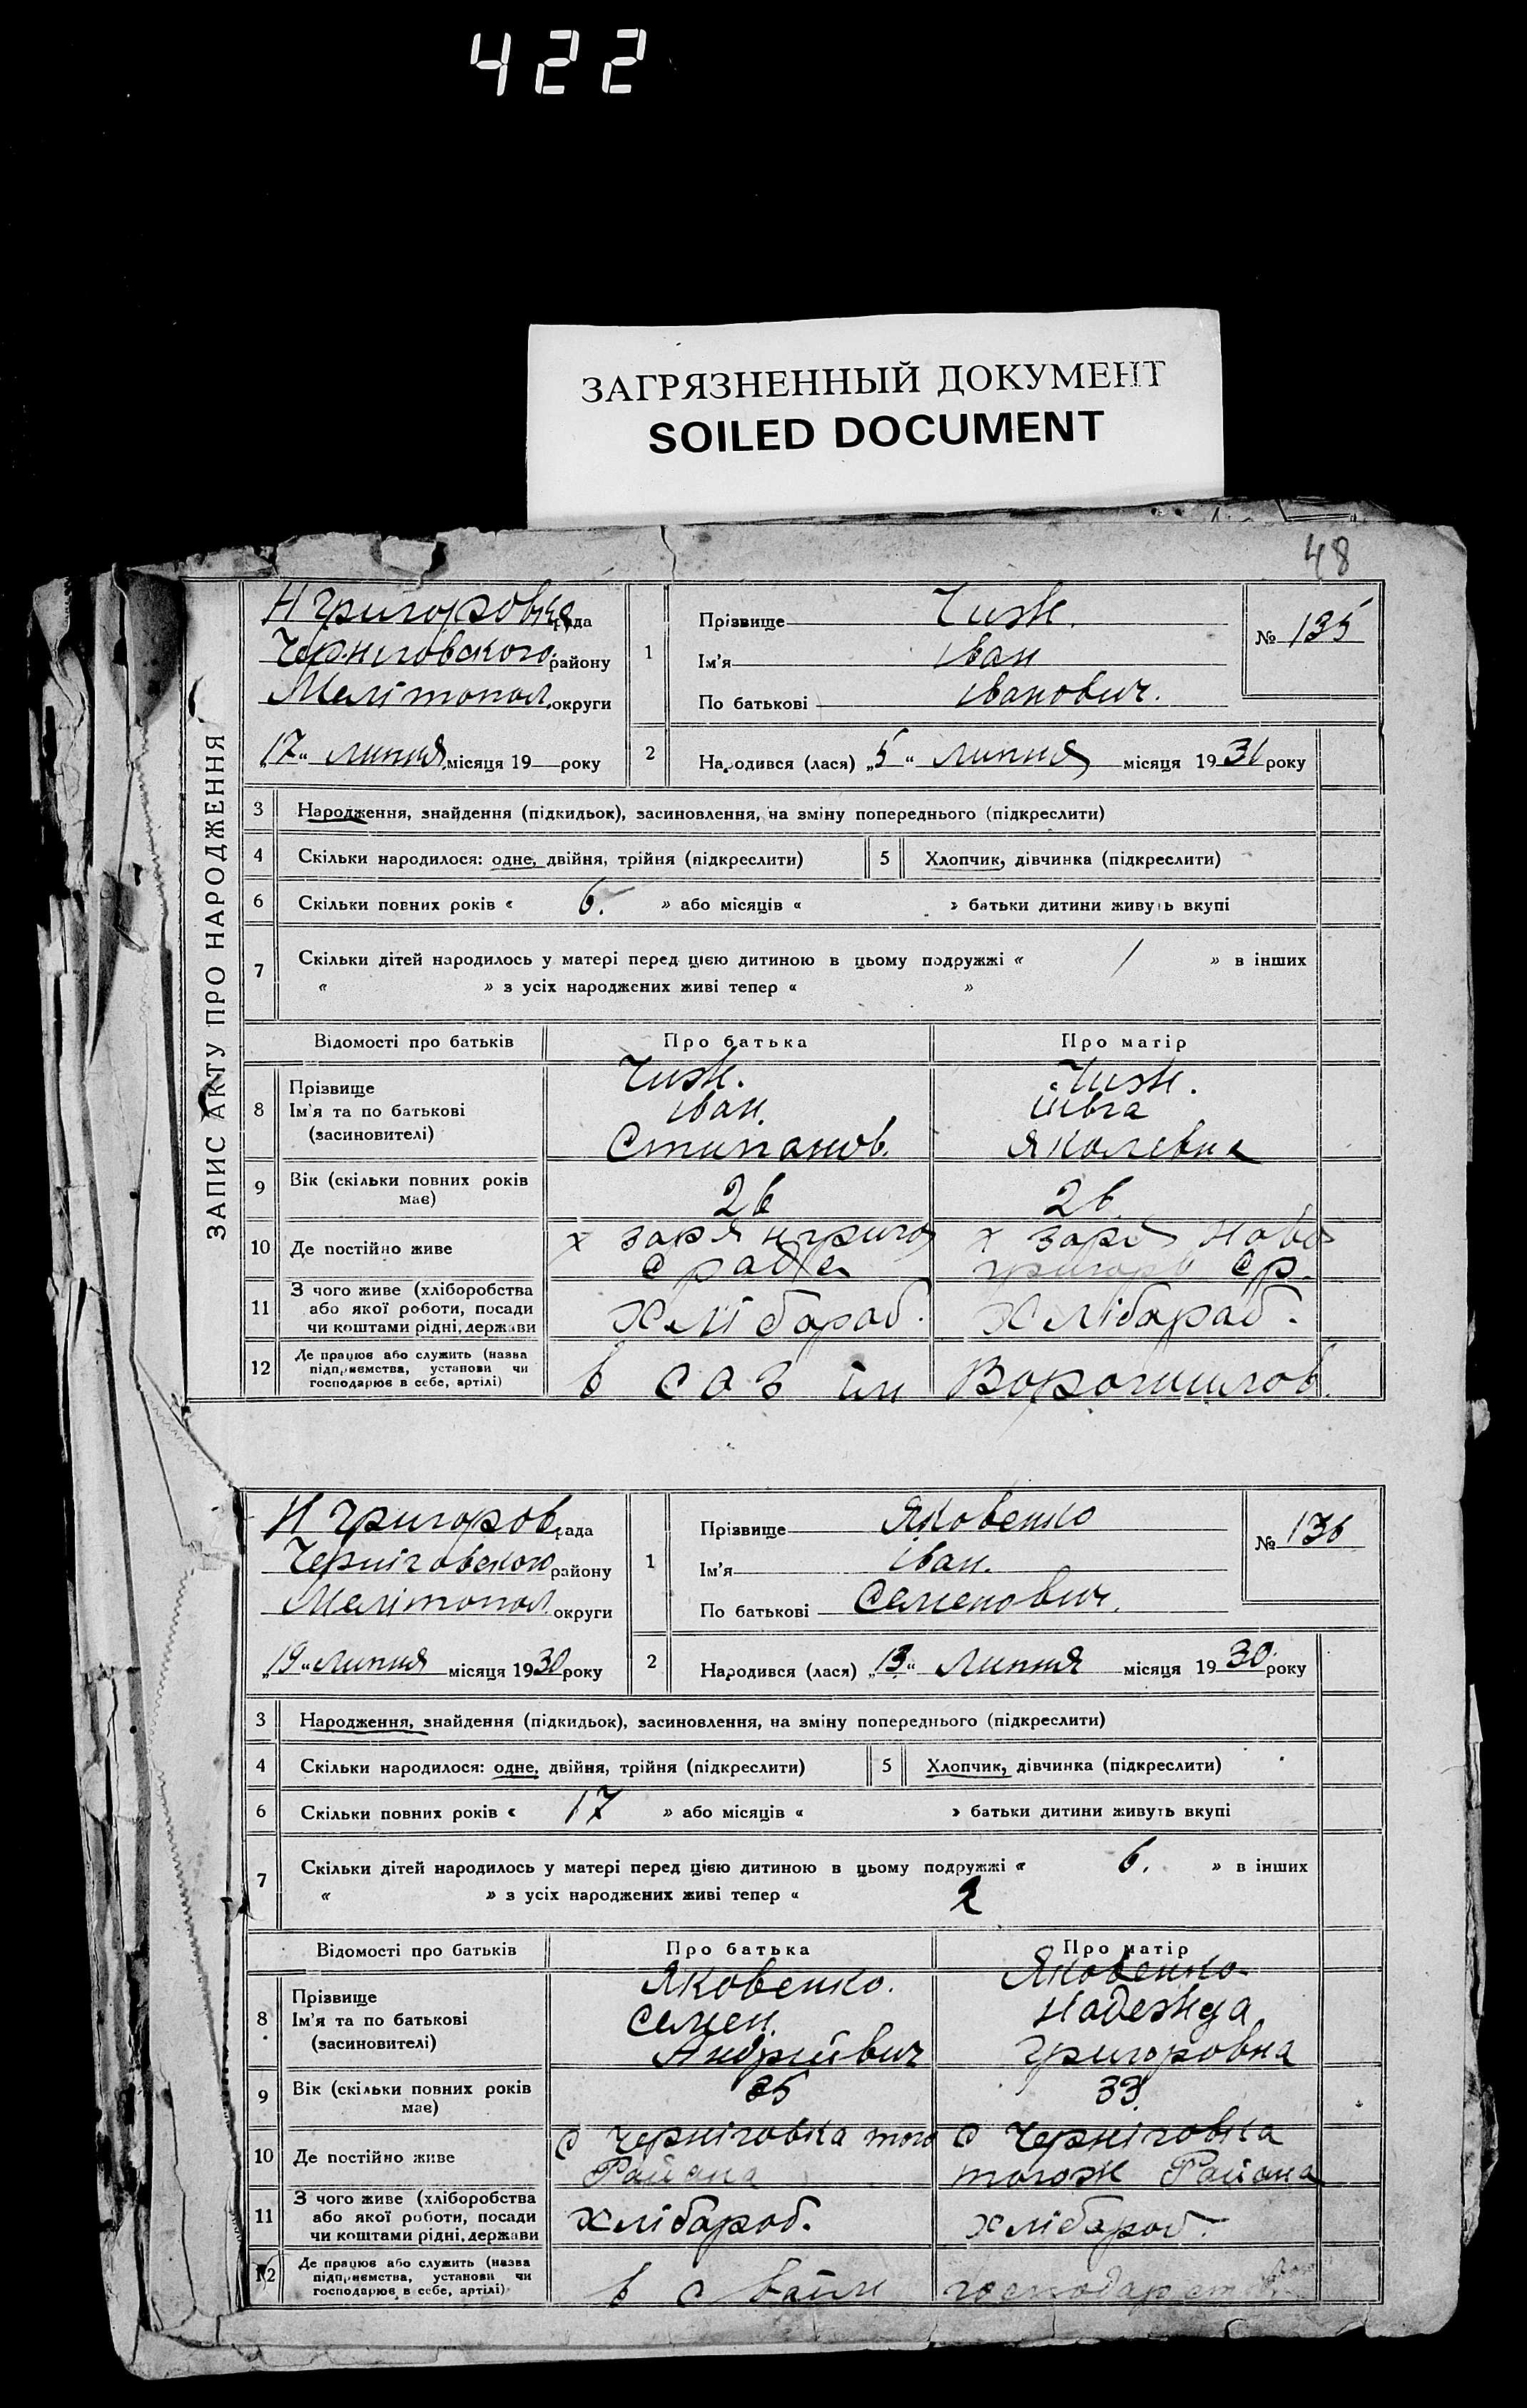 422
ЗАГРЯЗНЕННЫЙ ДОКУМЕНТ
SOILED DOCUMENT
48
ЗАПИС АКТУ ПРО НАРОДЖЕННЯ
Н Григоровка рада
Чернiговского району
Мелiтопол округи
17 " липня місяця 19 року
1 Прізвище Чиж.
Ім'я іван
По батькові іванович.
№ 135
2 Народився (лася) „ 5 " липня місяця 19 30 року
3 Народження, знайдення (підкидьок), засиновлення, на зміну попереднього (підкреслити)
4 Скільки народилося: одне, двійня, трійня (підкреслити) 5 Хлопчик, дівчинка (підкреслити)
6 Скільки повних років « 6. » або місяців « » батьки дитини живуть вкупі
7 Скільки дітей народилось у матері перед цією дитиною в цьому подружжі « 1 » в інших
« » з усіх народжених живі тепер « »
Відомості про батьків Про батька Про матір
8 Прізвище Чиж. Чиж.
Ім'я та по батькові іван.
(засиновителі) Степанов. Яколевна
9 Вік (скільки повних років має) 26 26
10 Де постійно живе х заря нгриго х заря Ново
с рада григоро ср.
11 З чого живе (хліборобства або якої роботи, посади чи коштами рідні, держави хлiбароб. хлiбароб.
12 Де працює або служить (назва підприємства, установи чи господарює в себе, артілі) в соз iм Ворошилов.
Н Григоров рада
Чернiговского району
Мелiтопол округи
„ 19 " липня місяця 19 30 року
1 Прізвище Яковенко
Ім'я іван.
По батькові Семенович.
№ 136
2 Народився (лася) „ 13 " Липня місяця 19 30 року
3 Народження, знайдення (підкидьок), засиновлення, на зміну попереднього (підкреслити)
4 Скільки народилося: одне, двійня, трійня (підкреслити) 5 Хлопчик, дівчинка (підкреслити)
6 Скільки повних років « 17 » або місяців « » батьки дитини живуть вкупі
7 Скільки дітей народилось у матері перед цією дитиною в цьому подружжі « 6. » в інших
« » з усіх народжених живі тепер « 2
Відомості про батьків Про батька Про матір
8 Прізвище Яковенко. Яковенко
Ім'я та по батькові Семен. Надежда
(засиновителі) Андрiiвич григоровна
9 Вік (скільки повних років має) 35 33
10 Де постійно живе с Чернiговка того с Чернiговка
Района тогож Района
11 З чого живе (хліборобства або якої роботи, посади чи коштами рідні, держави хлiбароб. хлiбароб.
12 Де працює або служить (назва підприємства, установи чи господарює в себе, артілі) в с